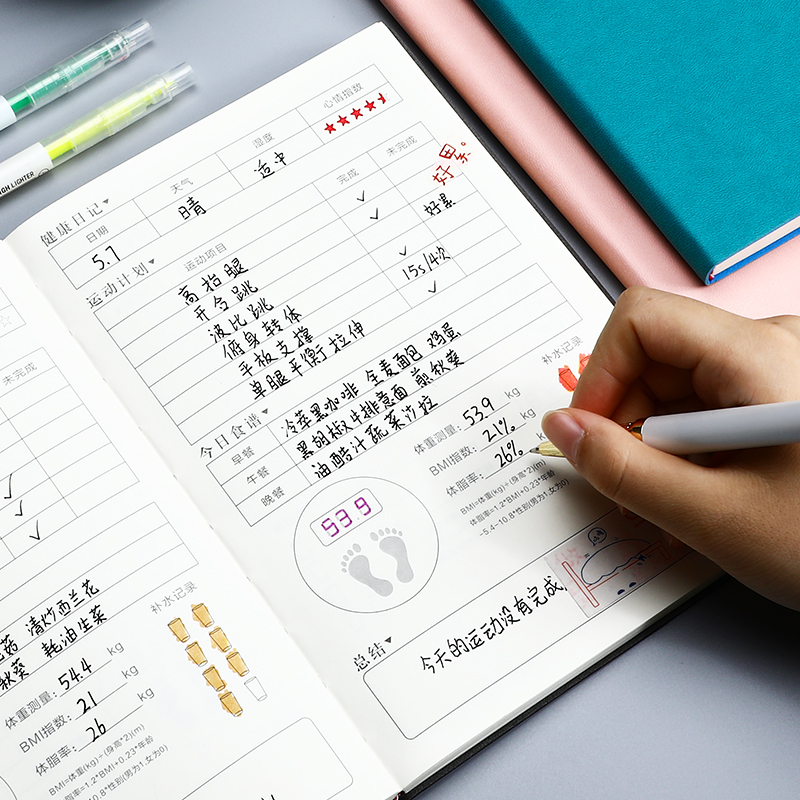 HIGH LIGHTER
健康日记
日期 天气 湿度 心情指数
5.7 晴 适中
运动计划
运动项目 完成 未完成
好累。
高抬腿 ✓
开合跳 ✓ 好累
波比跳
俯身转体 ✓
平板支撑 15s/4次
单腿平衡拉伸 ✓
今日食谱
早餐 冷萃黑咖啡 全麦面包 鸡蛋
午餐 黑胡椒牛排意面 煎秋葵
晚餐 油醋汁蔬菜沙拉
补水记录
53.9
体重测量: 53.9 kg
BMI指数: 21% kg
体脂率: 26% k
BMI=体重(kg)÷(身高*2)(m)
体脂率=1.2*BMI+0.23*年龄
-5.4-10.8*性别(男为1,女为0)
总结
今天的运动没有完成,
未完成
✓
✓
✓
菇 清炒西兰花
秋葵 耗油生菜
补水记录
体重测量: 54.4 kg
BMI指数: 21 kg
体脂率: 26 kg
BMI=体重(kg)÷(身高*2)(m)
体脂率=1.2*BMI+0.23*年龄
10.8*性别(男为1,女为0)